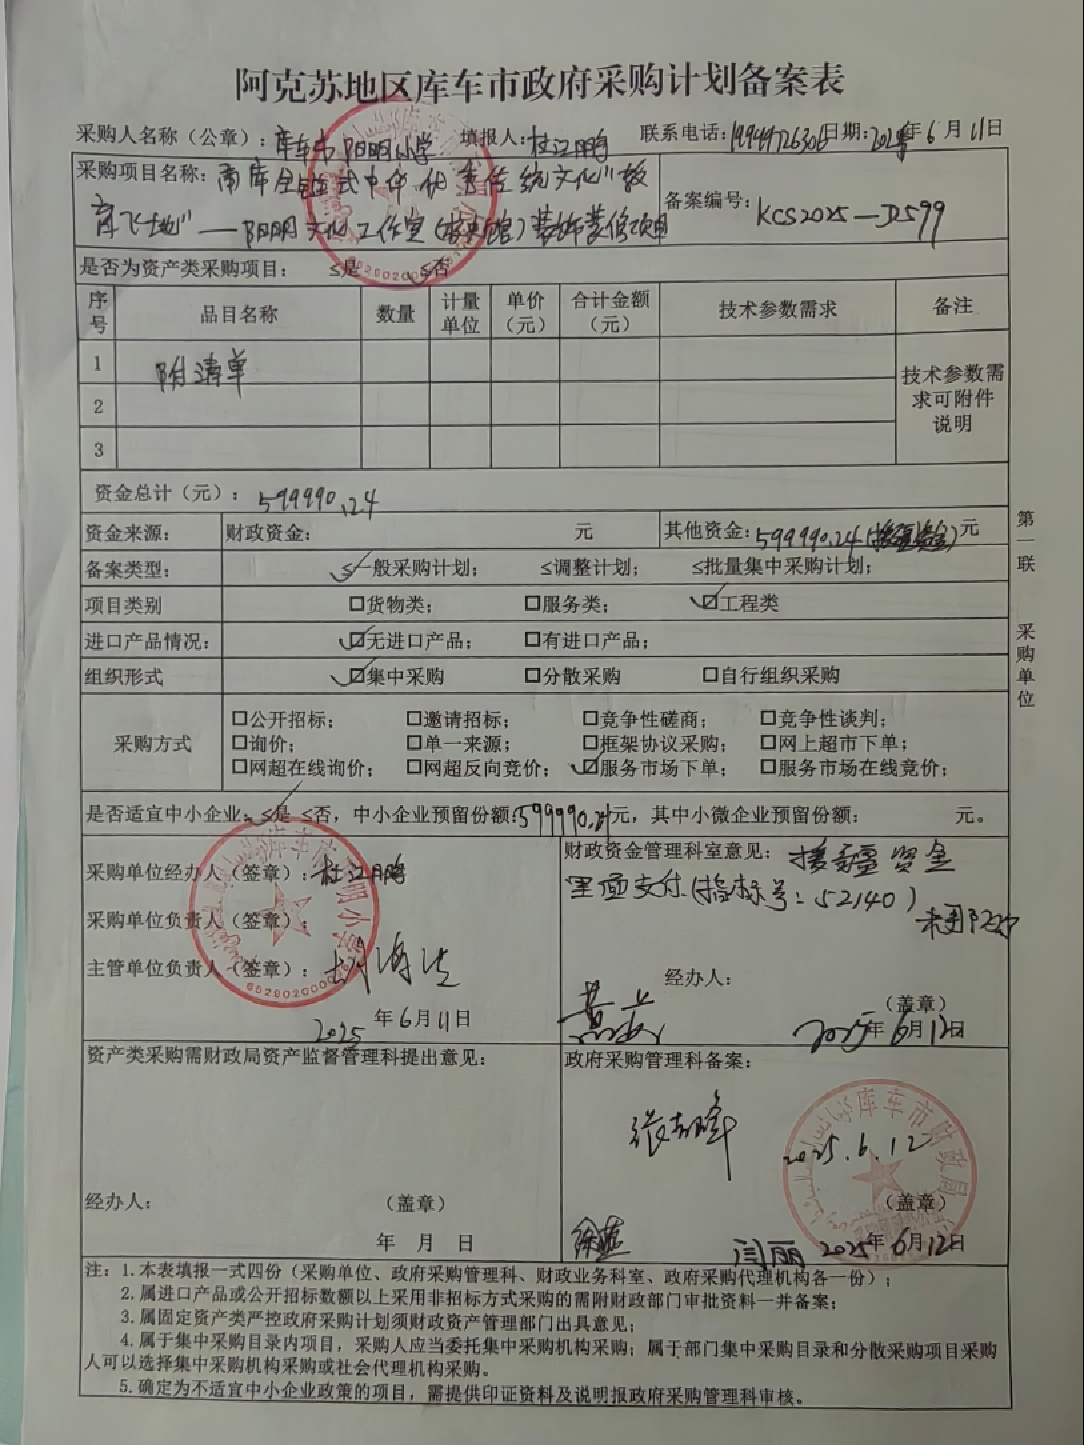 阿克苏地区库车市政府采购计划备案表
采购人名称（公章）：库车市阳明小学 填报人：杜江鹏 联系电话： 日期：2025年6月11日
采购项目名称：
式中华优秀传统文化"教
育飞地"——阳明文化工作室（校史馆）装饰装修项目
备案编号：KCS2025—D599
是否为资产类采购项目： ≤是 ≤否
序号 品目名称 数量 计量单位 单价（元） 合计金额（元） 技术参数需求 备注
1 附清单
2
3
技术参数需求可附件说明
资金总计（元）：599990.24
资金来源： 财政资金： 元 其他资金：599990.24(援疆资金)元
备案类型： ≤一般采购计划； ≤调整计划； ≤批量集中采购计划；
项目类别 □货物类； □服务类； ☑工程类
进口产品情况： ☑无进口产品； □有进口产品；
组织形式 ☑集中采购 □分散采购 □自行组织采购
采购方式
□公开招标； □邀请招标； □竞争性磋商； □竞争性谈判；
□询价； □单一来源； □框架协议采购； □网上超市下单；
□网超在线询价； □网超反向竞价； ☑服务市场下单； □服务市场在线竞价；
是否适宜中小企业：≤是 ≤否，中小企业预留份额：599990.24元，其中小微企业预留份额： 元。
采购单位经办人（签章）：杜江鹏
采购单位负责人（签章）：
主管单位负责人（签章）：
2025年6月11日
财政资金管理科室意见：援疆资金
里面支付(指标号：52140)
经办人：
（盖章）
2025年6月12日
资产类采购需财政局资产监督管理科提出意见：
经办人： （盖章）
年 月 日
政府采购管理科备案：
2025.6.12
（盖章）
闫丽 2025年6月12日
库车市财政局
6529020000
第一联 采购单位
注：1.本表填报一式四份（采购单位、政府采购管理科、财政业务科室、政府采购代理机构各一份）；
2.属进口产品或公开招标数额以上采用非招标方式采购的需附财政部门审批资料一并备案；
3.属固定资产类严控政府采购计划须财政资产管理部门出具意见；
4.属于集中采购目录内项目，采购人应当委托集中采购机构采购；属于部门集中采购目录和分散采购项目采购
人可以选择集中采购机构采购或社会代理机构采购。
5.确定为不适宜中小企业政策的项目，需提供印证资料及说明报政府采购管理科审核。